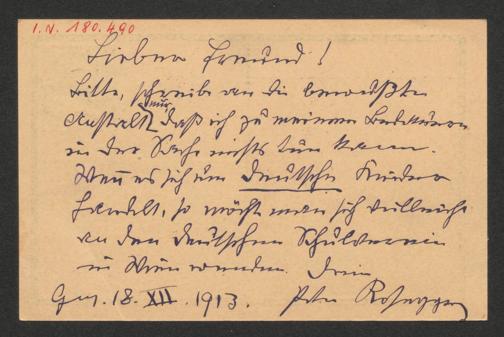 I.N. 180.490
Lieber Freund!
Bitte, schreibe an die bewußte
Anstalt nur, daß ich zu meinem Bedauern
in der Sache nichts tun kann.
Wenn es sich um deutsche Kinder
handelt, so möchte man sich vielleicht
an den deutschen Schulverein
in Wien wenden. Dein
Graz. 18. XII. 1913. Peter Rosegger